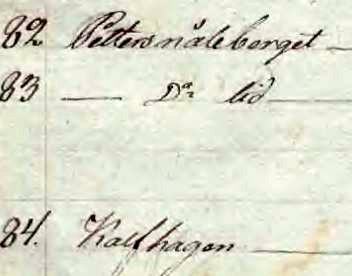 82 Pettersnåleberget —
83 — Do lid —
84. Kalfhagen —